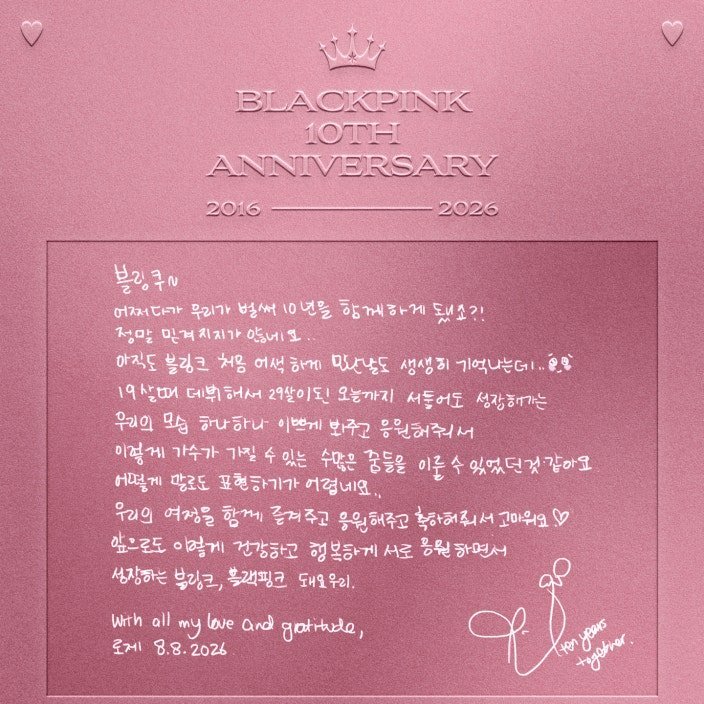 BLACKPINK
10TH
ANNIVERSARY
2016 — 2026
블링쿠~
어쩌다가 우리가 벌써 10년을 함께하게 됐죠?!
정말 믿겨지지가 않네요..
아직도 블링크 처음 어색하게 만난날도 생생히 기억나는데..
19살때 데뷔해서 29살이 된 오늘까지 서툴어도 성장해가는
우리의 모습 하나하나 이쁘게 봐주고 응원해줘서
이렇게 가수가 가질 수 있는 수많은 꿈들을 이룰 수 있었던것 같아요
어떻게 말로도 표현하기가 어렵네요..
우리의 여정을 함께 즐겨주고 응원해주고 축하해줘서 고마워요♡
앞으로도 이렇게 건강하고 행복하게 서로 응원하면서
성장하는 블링크, 블랙핑크 돼요우리.
With all my love and gratitude,
로제 8.8.2026
ten years
together.